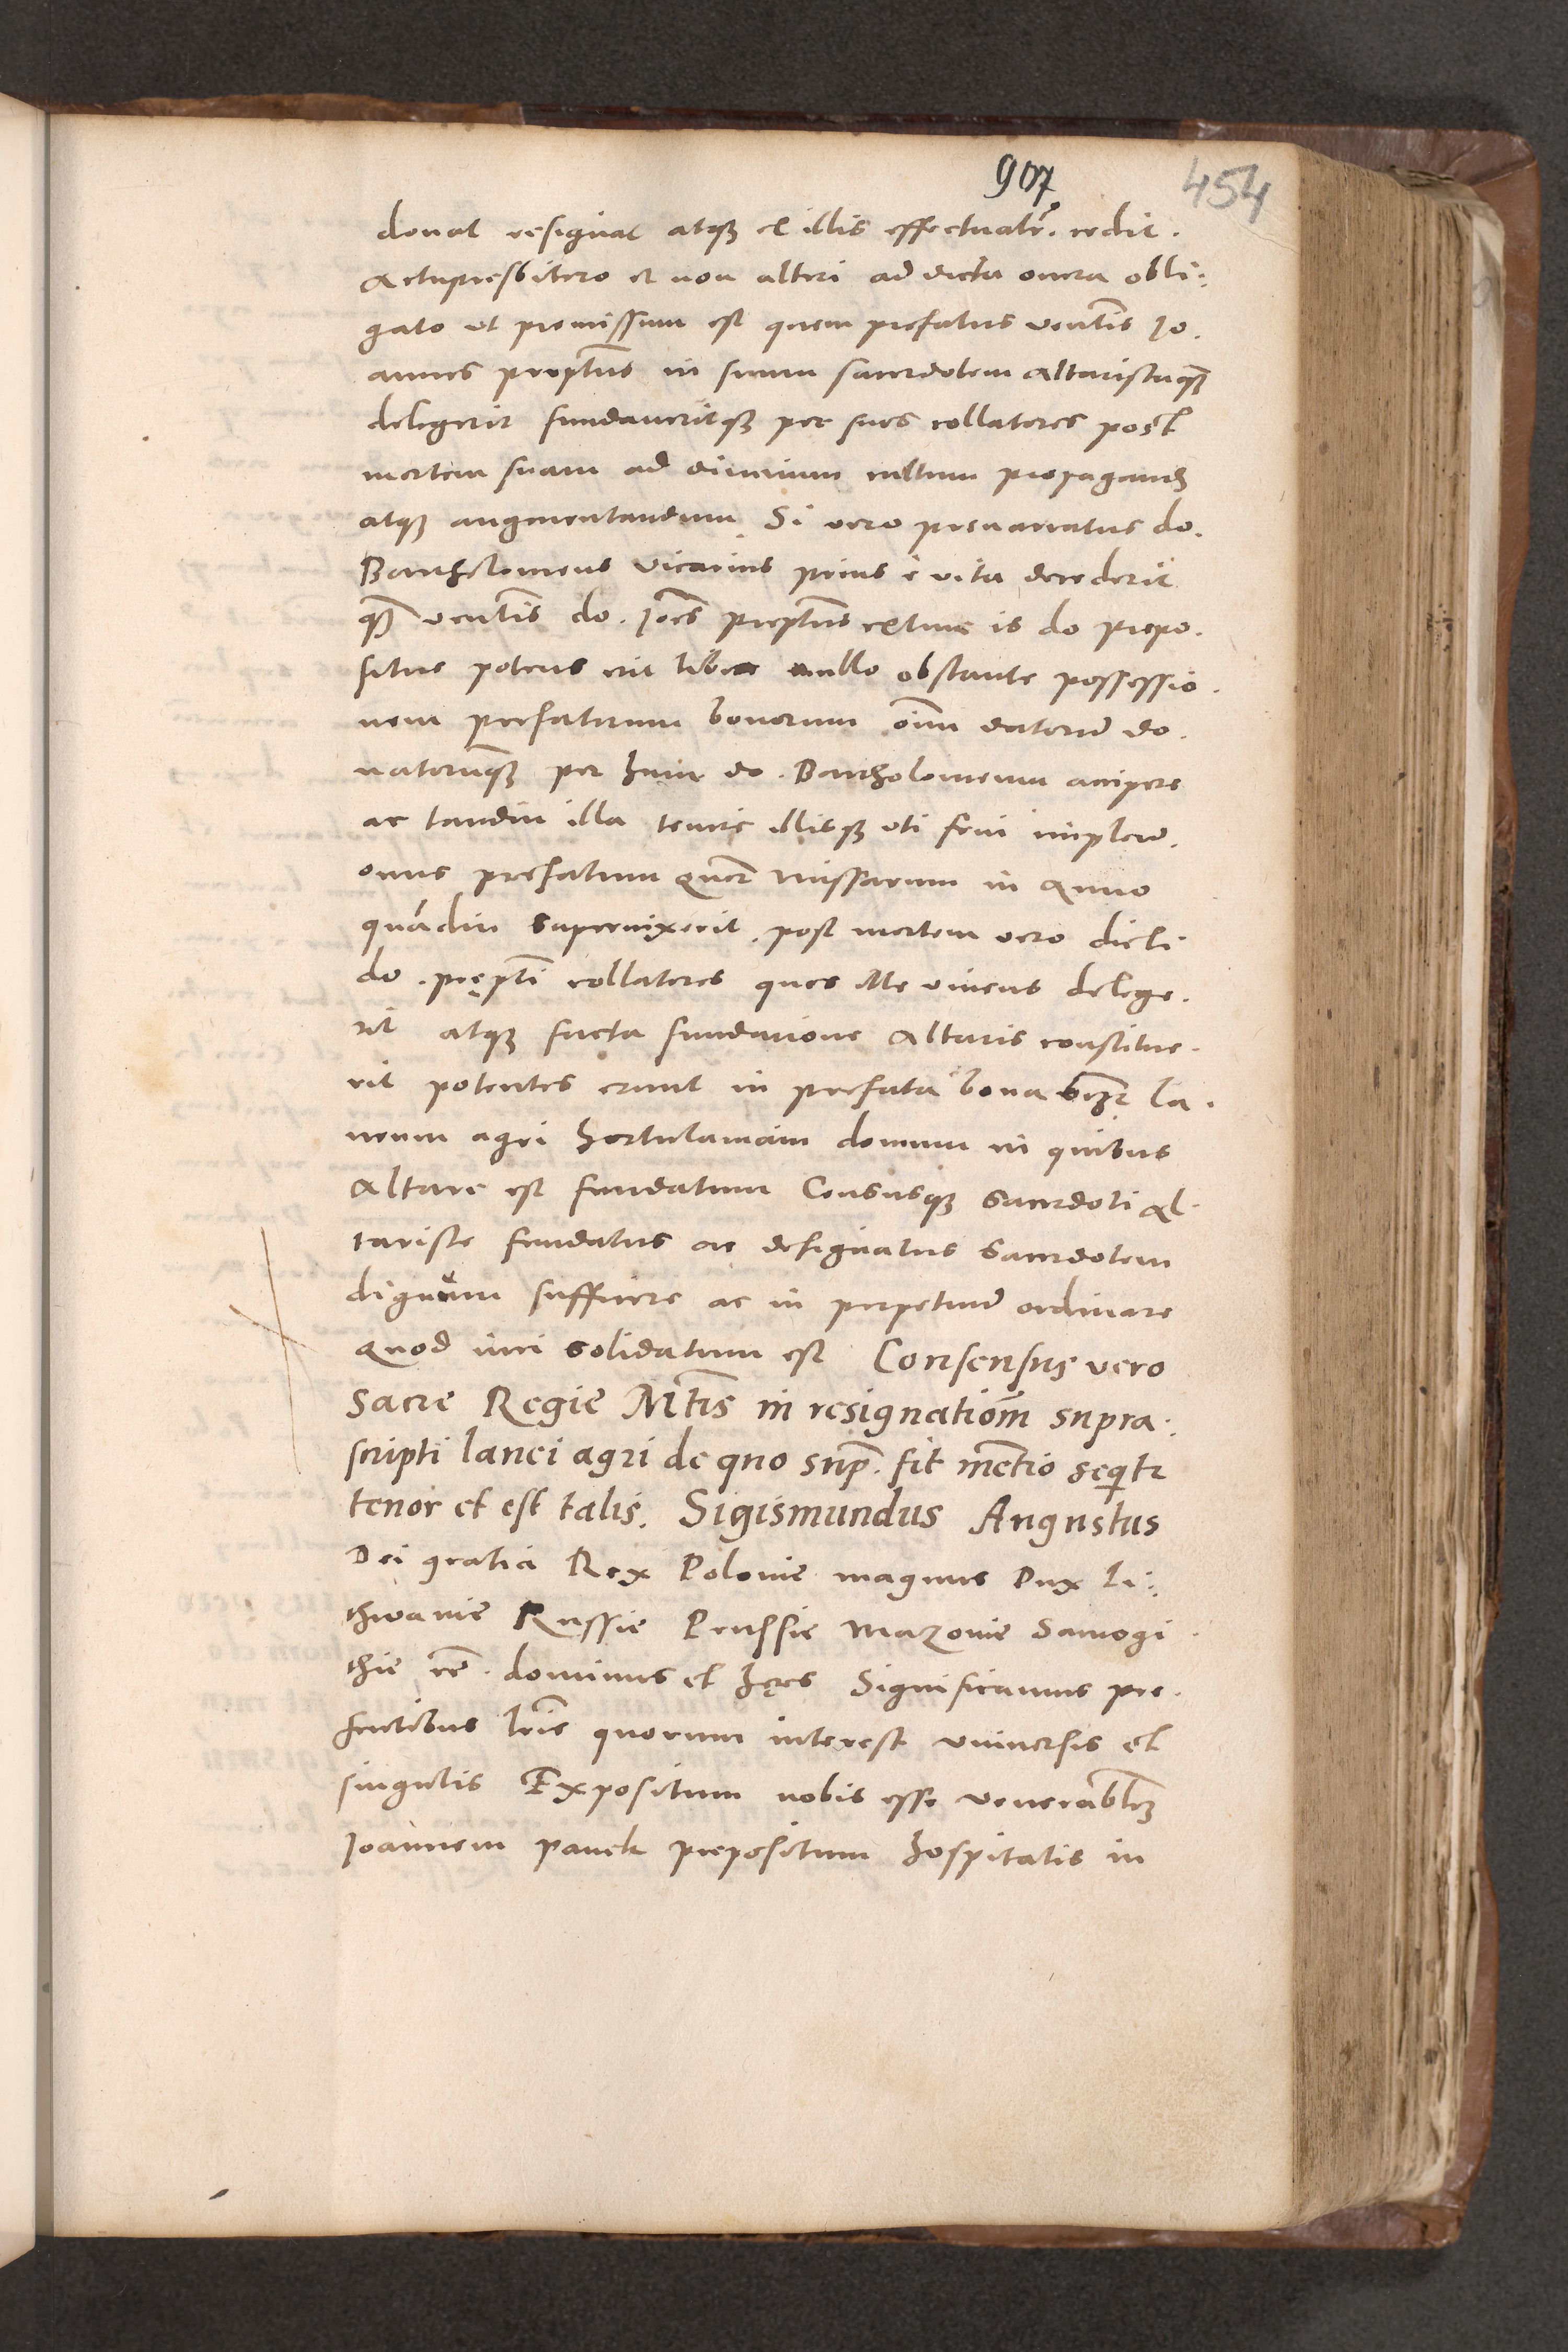 907
454
donat resignat atqȝ ex illis effectualr̃. cedit.
Actupresbitero et non alteri ad dicta onera obli:
gato ut premissum est quem prefatus ventis̃ Jo.
annes prepts̃ in suum sacerdotem Altaristaqȝ
delegerit fundaueritqȝ per suos collatores post
mortem suam ad diuinum cultum propagand̃
atqȝ augmentandum. Si vero prenarratus do.
Bartholomeus vicarius prius è vita decederit
qȝ ventis̃ do. Joes̃ prepts̃ extunc is do prepo.
situs potens erit libere nullo obstante possessio.
nem prefatorum bonorum oĩm datorũ do.
natorũqȝ per hunc do. Bartholomeum accipere
ac tamdiu illa tenere illisqȝ uti frui implere.
onus prefatum quatr̃ missarum in Anno
quãdiu superuixerit. post mortem vero dicti
do. pręptĩ collatores quos Ille viuens delege.
rit atqȝ facta fundatione Altaris constitue.
rit potentes erunt in prefata bona La.
neum agri hortulaniam domum in quibus
Altare est fundatum Censusqȝ Sacerdoti Al.
tariste fundatus ac designatus Sacerdotem
dignum sufficere ac in perpetuũ ordinare
Quod iuri solidatum est Consensus vero
Sacre Regie Mt̃is in resignatiõem supra.
scripti lanei agri de quo sup̃. fit mẽtio seqitr̃
tenor et est talis. Sigismundus Augustus
Dei gratia Rex Polonie magnus Dux Li:
thwanie Russie Prussie Mazouie Samogi.
thie rc̃. dominus et hęres Significamus pre.
sentibus lr̃is quorum interest vniuersis et
singulis Expositum nobis esse venerabilẽ
Joannem pauek prepositum hospitalis in